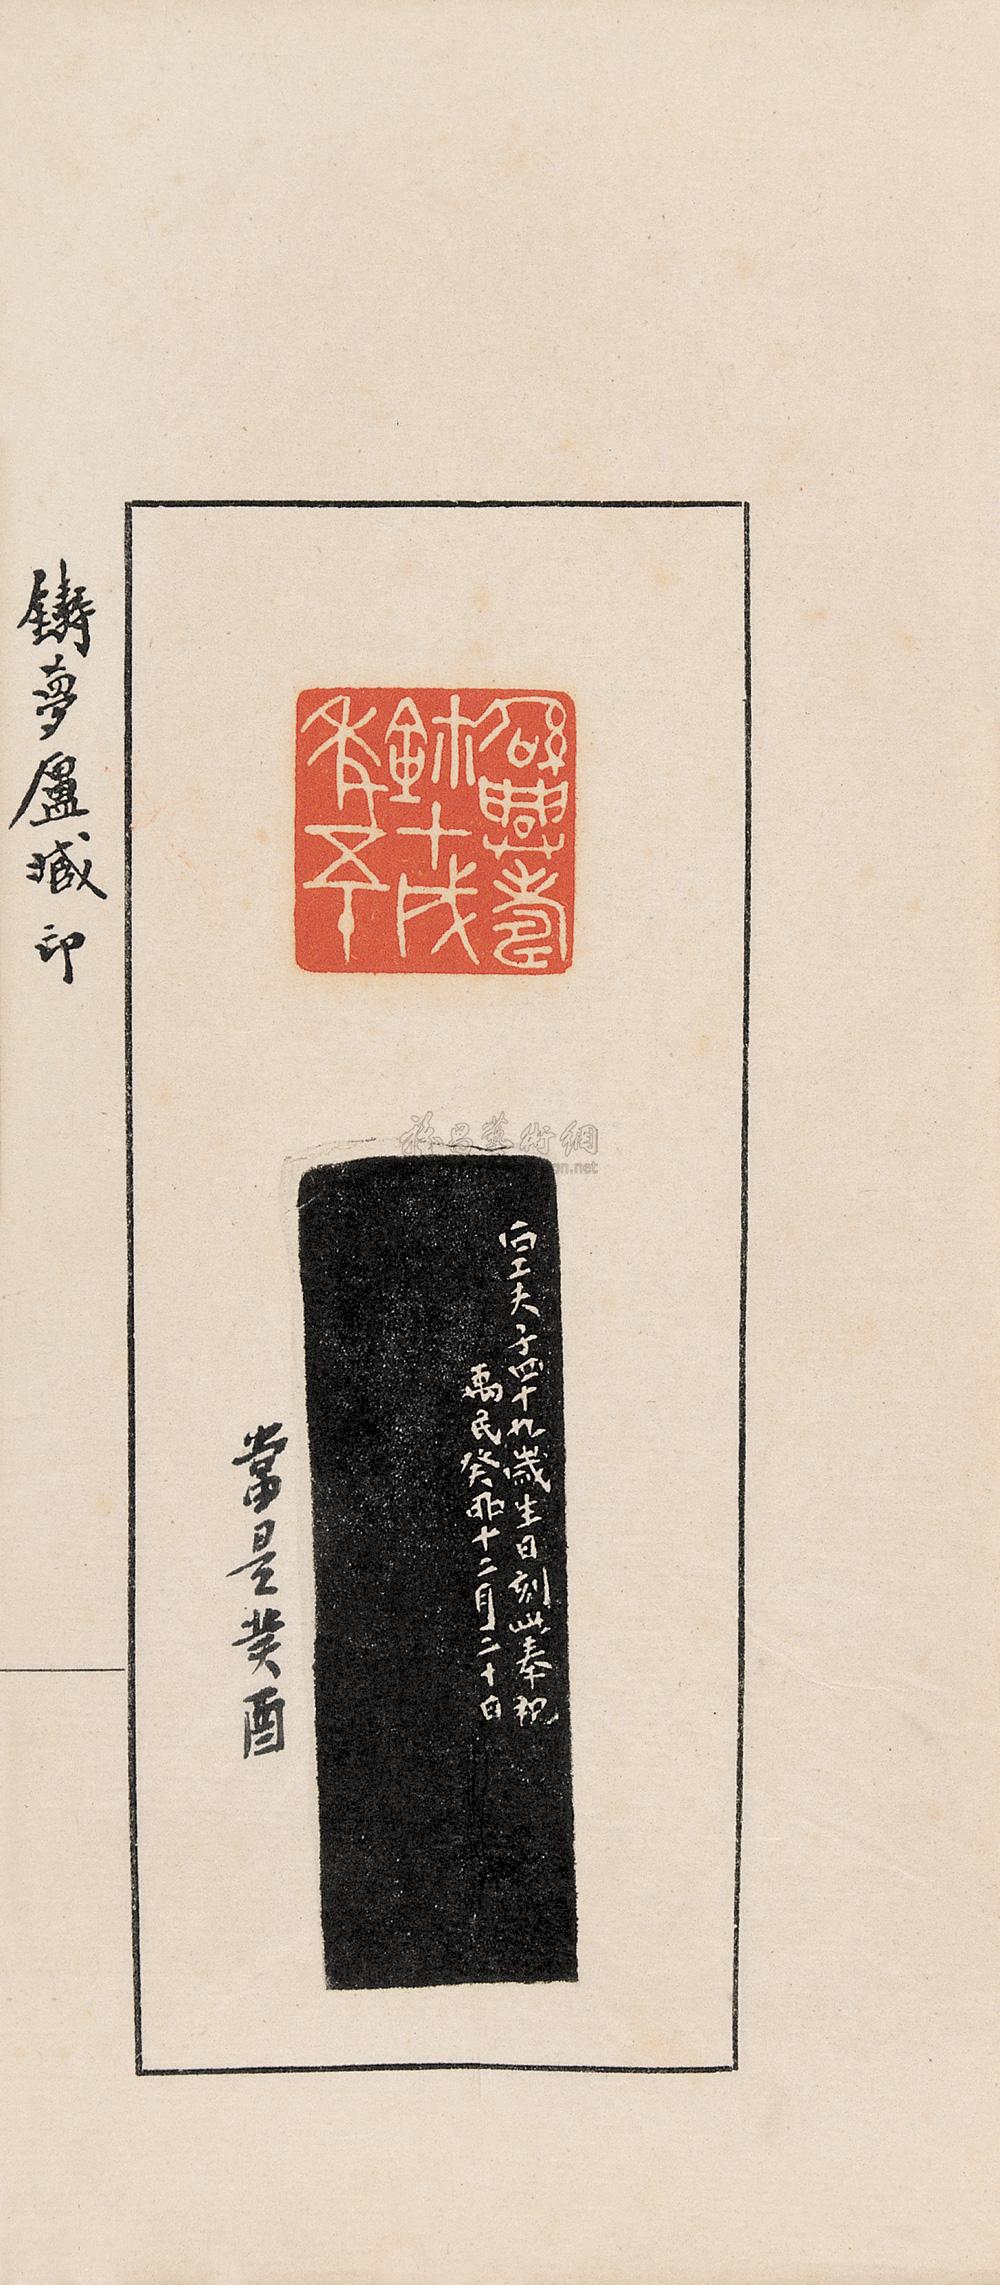 石工夫子四十九歲生日刻此奉祝
禹民癸卯十二月二十日
當是癸酉
鑄夢廬臧印
雅昌藝術網